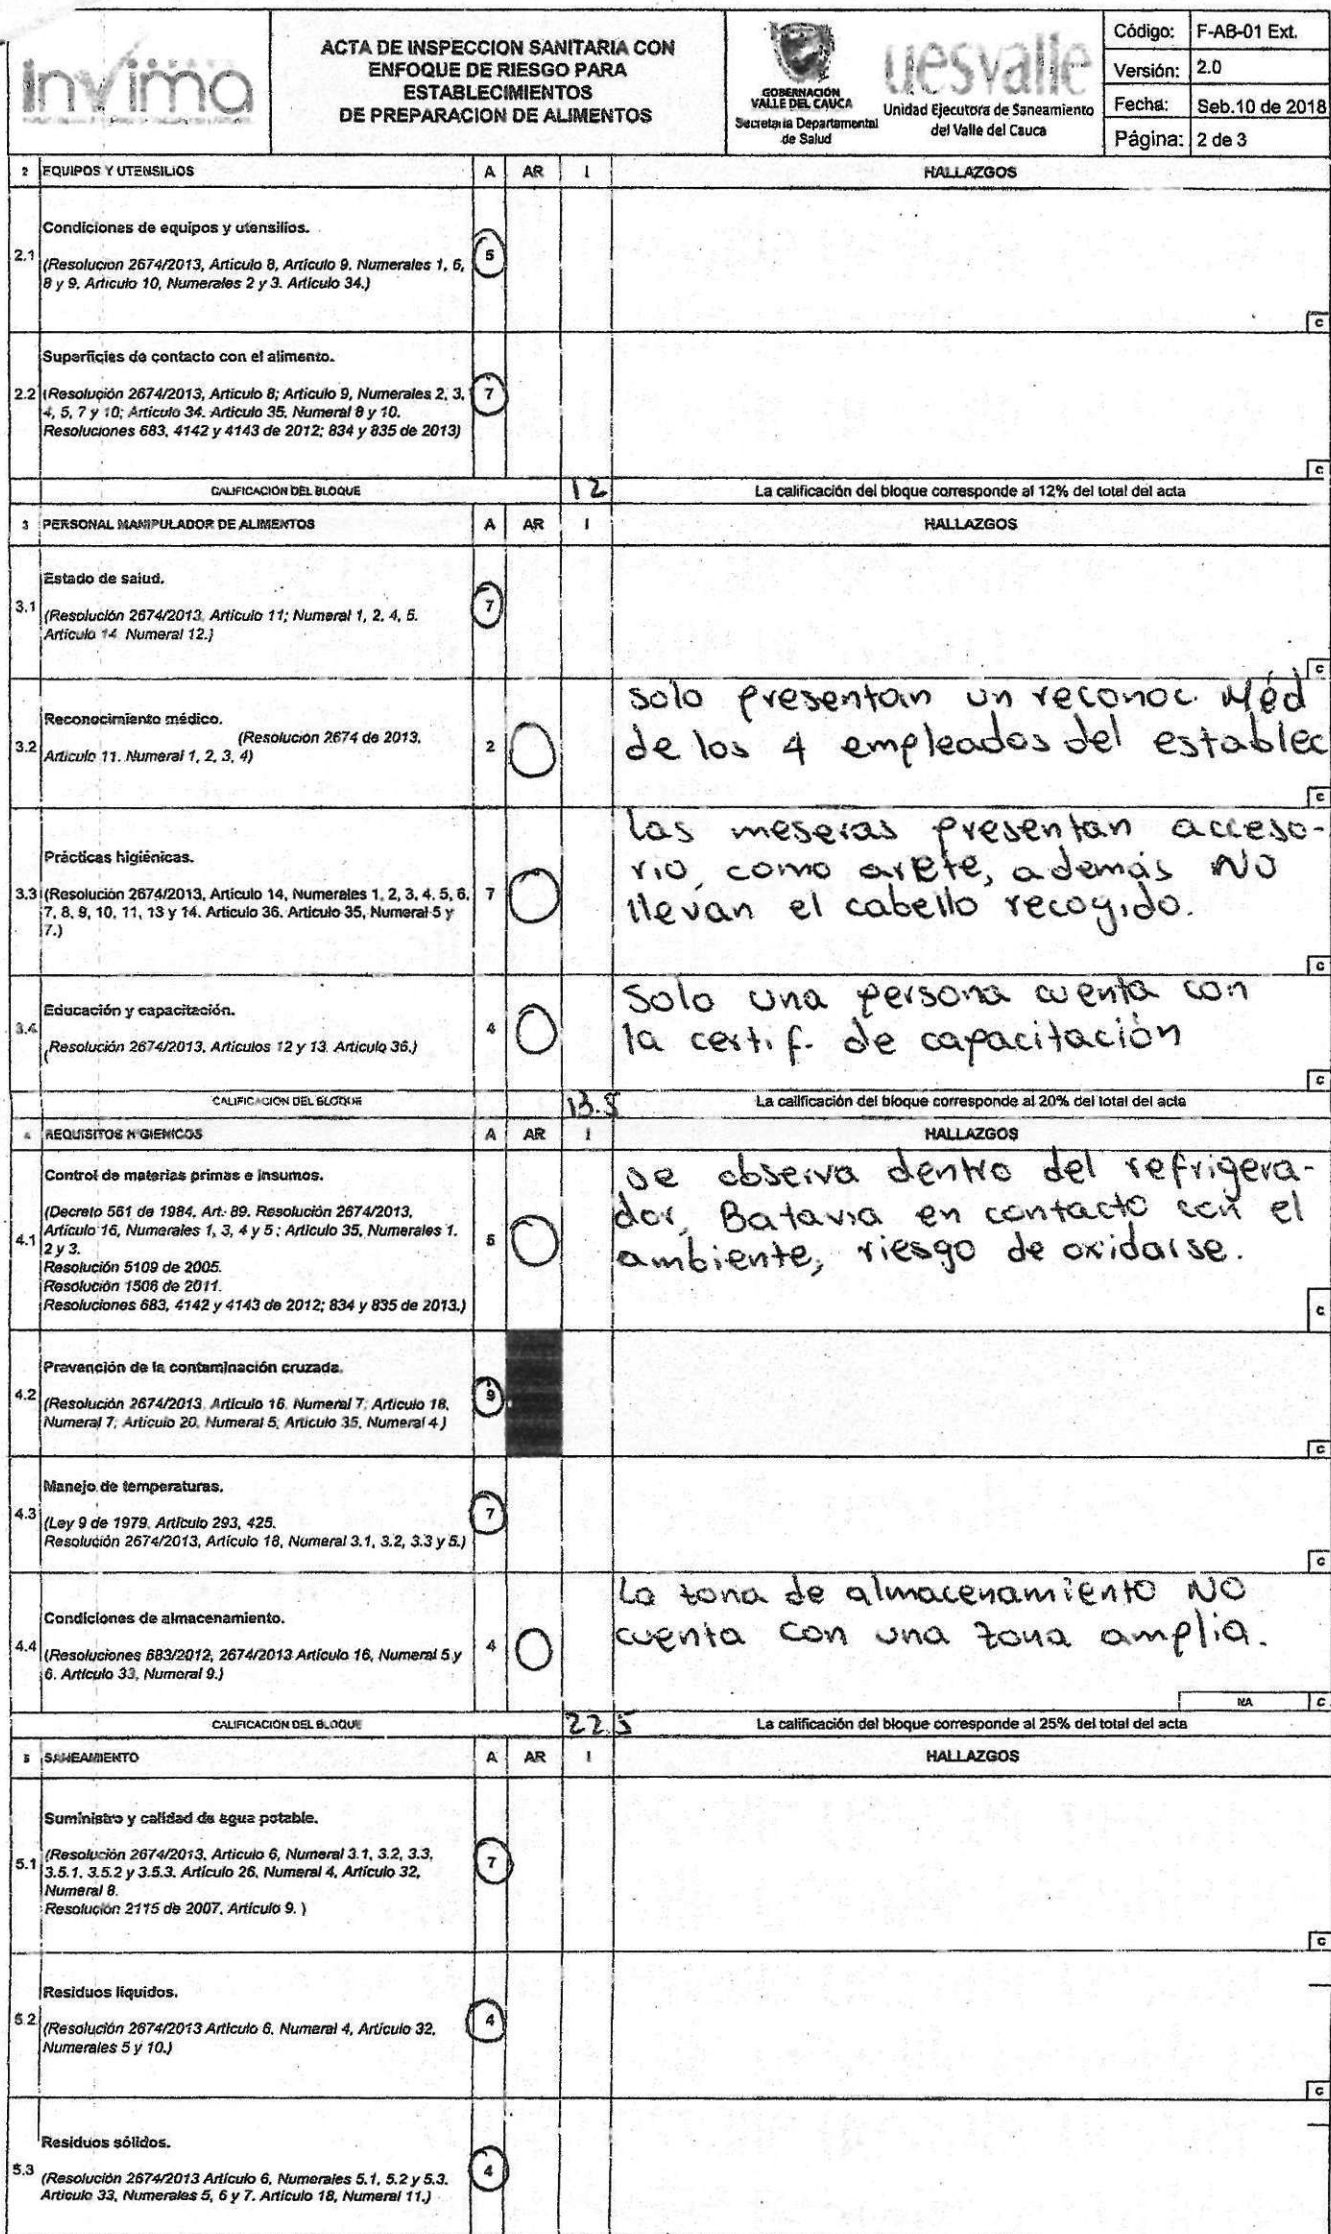 invima
ACTA DE INSPECCION SANITARIA CON
ENFOQUE DE RIESGO PARA
ESTABLECIMIENTOS
DE PREPARACION DE ALIMENTOS
GOBERNACIÓN
VALLE DEL CAUCA
Secretaria Departamental
de Salud
uesvalle
Unidad Ejecutora de Saneamiento
del Valle del Cauca
Código: F-AB-01 Ext.
Versión: 2.0
Fecha: Seb.10 de 2018
Página: 2 de 3
2 EQUIPOS Y UTENSILIOS A AR I HALLAZGOS
Condiciones de equipos y utensilios.
2.1 (Resolucion 2674/2013, Articulo 8, Artículo 9. Numerales 1, 6, 5
8 y 9. Articulo 10, Numerales 2 y 3. Articulo 34.)
C
Superficies de contacto con el alimento.
2.2 (Resolución 2674/2013, Articulo 8; Articulo 9, Numerales 2, 3, 7
4, 5, 7 y 10; Articulo 34. Articulo 35, Numeral 8 y 10.
Resoluciones 683, 4142 y 4143 de 2012; 834 y 835 de 2013)
C
CALIFICACION DEL BLOQUE 12 La calificación del bloque corresponde al 12% del total del acta
3 PERSONAL MANIPULADOR DE ALIMENTOS A AR I HALLAZGOS
Estado de salud.
3.1 (Resolución 2674/2013, Articulo 11; Numeral 1, 2, 4, 5. 7
Articulo 14 Numeral 12.)
C
Reconocimiento médico.
(Resolución 2674 de 2013,
3.2 Articulo 11. Numeral 1, 2, 3, 4) 2
solo presentan un reconoc. Méd
de los 4 empleados del establec
C
Prácticas higiénicas.
3.3 (Resolución 2674/2013, Articulo 14, Numerales 1, 2, 3, 4, 5, 6, 7
7, 8, 9, 10, 11, 13 y 14. Articulo 36. Articulo 35, Numeral 5 y
7.)
las meseras presentan acceso-
rio, como arete, además NO
llevan el cabello recogido.
C
Educación y capacitación.
3.4 (Resolución 2674/2013, Articulos 12 y 13. Articulo 36.) 4
Solo una persona cuenta con
la certif. de capacitación
C
CALIFICACION DEL BLOQUE 13.5 La calificación del bloque corresponde al 20% del total del acta
4 REQUISITOS HIGIENICOS A AR I HALLAZGOS
Control de materias primas e insumos.
(Decreto 561 de 1984, Art- 89. Resolución 2674/2013,
4.1 Artículo 16, Numerales 1, 3, 4 y 5; Articulo 35, Numerales 1. 5
2 y 3.
Resolución 5109 de 2005.
Resolución 1506 de 2011.
Resoluciones 683, 4142 y 4143 de 2012; 834 y 835 de 2013.)
se observa dentro del refrigera-
dor, Batavia en contacto con el
ambiente, riesgo de oxidarse.
C
Prevención de la contaminación cruzada.
4.2 (Resolución 2674/2013. Articulo 16. Numeral 7; Articulo 18, 9
Numeral 7; Articulo 20, Numeral 5; Articulo 35, Numeral 4)
C
Manejo de temperaturas.
4.3 (Ley 9 de 1979. Artículo 293, 425. 7
Resolución 2674/2013, Articulo 18, Numeral 3.1, 3.2, 3.3 y 5.)
C
Condiciones de almacenamiento.
4.4 (Resoluciones 683/2012, 2674/2013 Articulo 16, Numeral 5 y 4
6. Articulo 33, Numeral 9.)
La zona de almacenamiento NO
cuenta con una zona amplia.
NA C
CALIFICACION DEL BLOQUE 22.5 La calificación del bloque corresponde al 25% del total del acta
5 SANEAMIENTO A AR I HALLAZGOS
Suministro y calidad de agua potable.
5.1 (Resolución 2674/2013, Articulo 6, Numeral 3.1, 3.2, 3.3, 7
3.5.1, 3.5.2 y 3.5.3. Artículo 26, Numeral 4, Artículo 32,
Numeral 8.
Resolución 2115 de 2007, Articulo 9. )
C
Residuos liquidos.
5.2 (Resolución 2674/2013 Articulo 6. Numeral 4, Articulo 32, 4
Numerales 5 y 10.)
C
Residuos sólidos.
5.3 (Resolución 2674/2013 Articulo 6, Numerales 5.1, 5.2 y 5.3. 4
Articulo 33, Numerales 5, 6 y 7. Articulo 18, Numeral 11.)